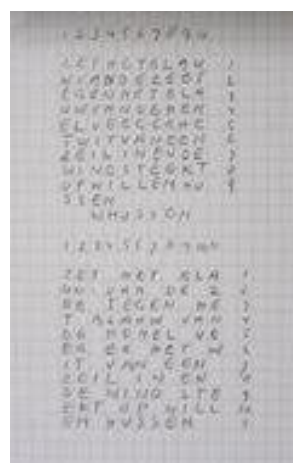 1 2 3 4 5 6 7 8 9
ZETHETBLAU 1
WVANDEZEET 2
EGENHETBLA 3
UWVANDEHEM 4
ELVEEGERHE 5
TWITVANEEN 6
ZEILINENDE 7
WINDSTEEKT 8
OPWILLEMHU 9
SSEN
1 2 3 4 5 6 7 8 9
ZET HET BLA 1
UW VAN DE Z 2
EE TEGEN HE 3
T BLAUW VAN 4
DE HEMEL VE 5
EG ER HET W 6
IT VAN EEN 7
ZEIL IN EN 8
DE WIND STE 9
EKT OP WILL 10
EM HUSSEM